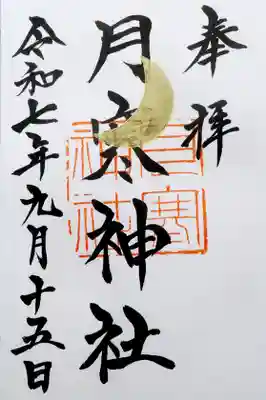 奉拝
月寒神社
令和七年九月十五日